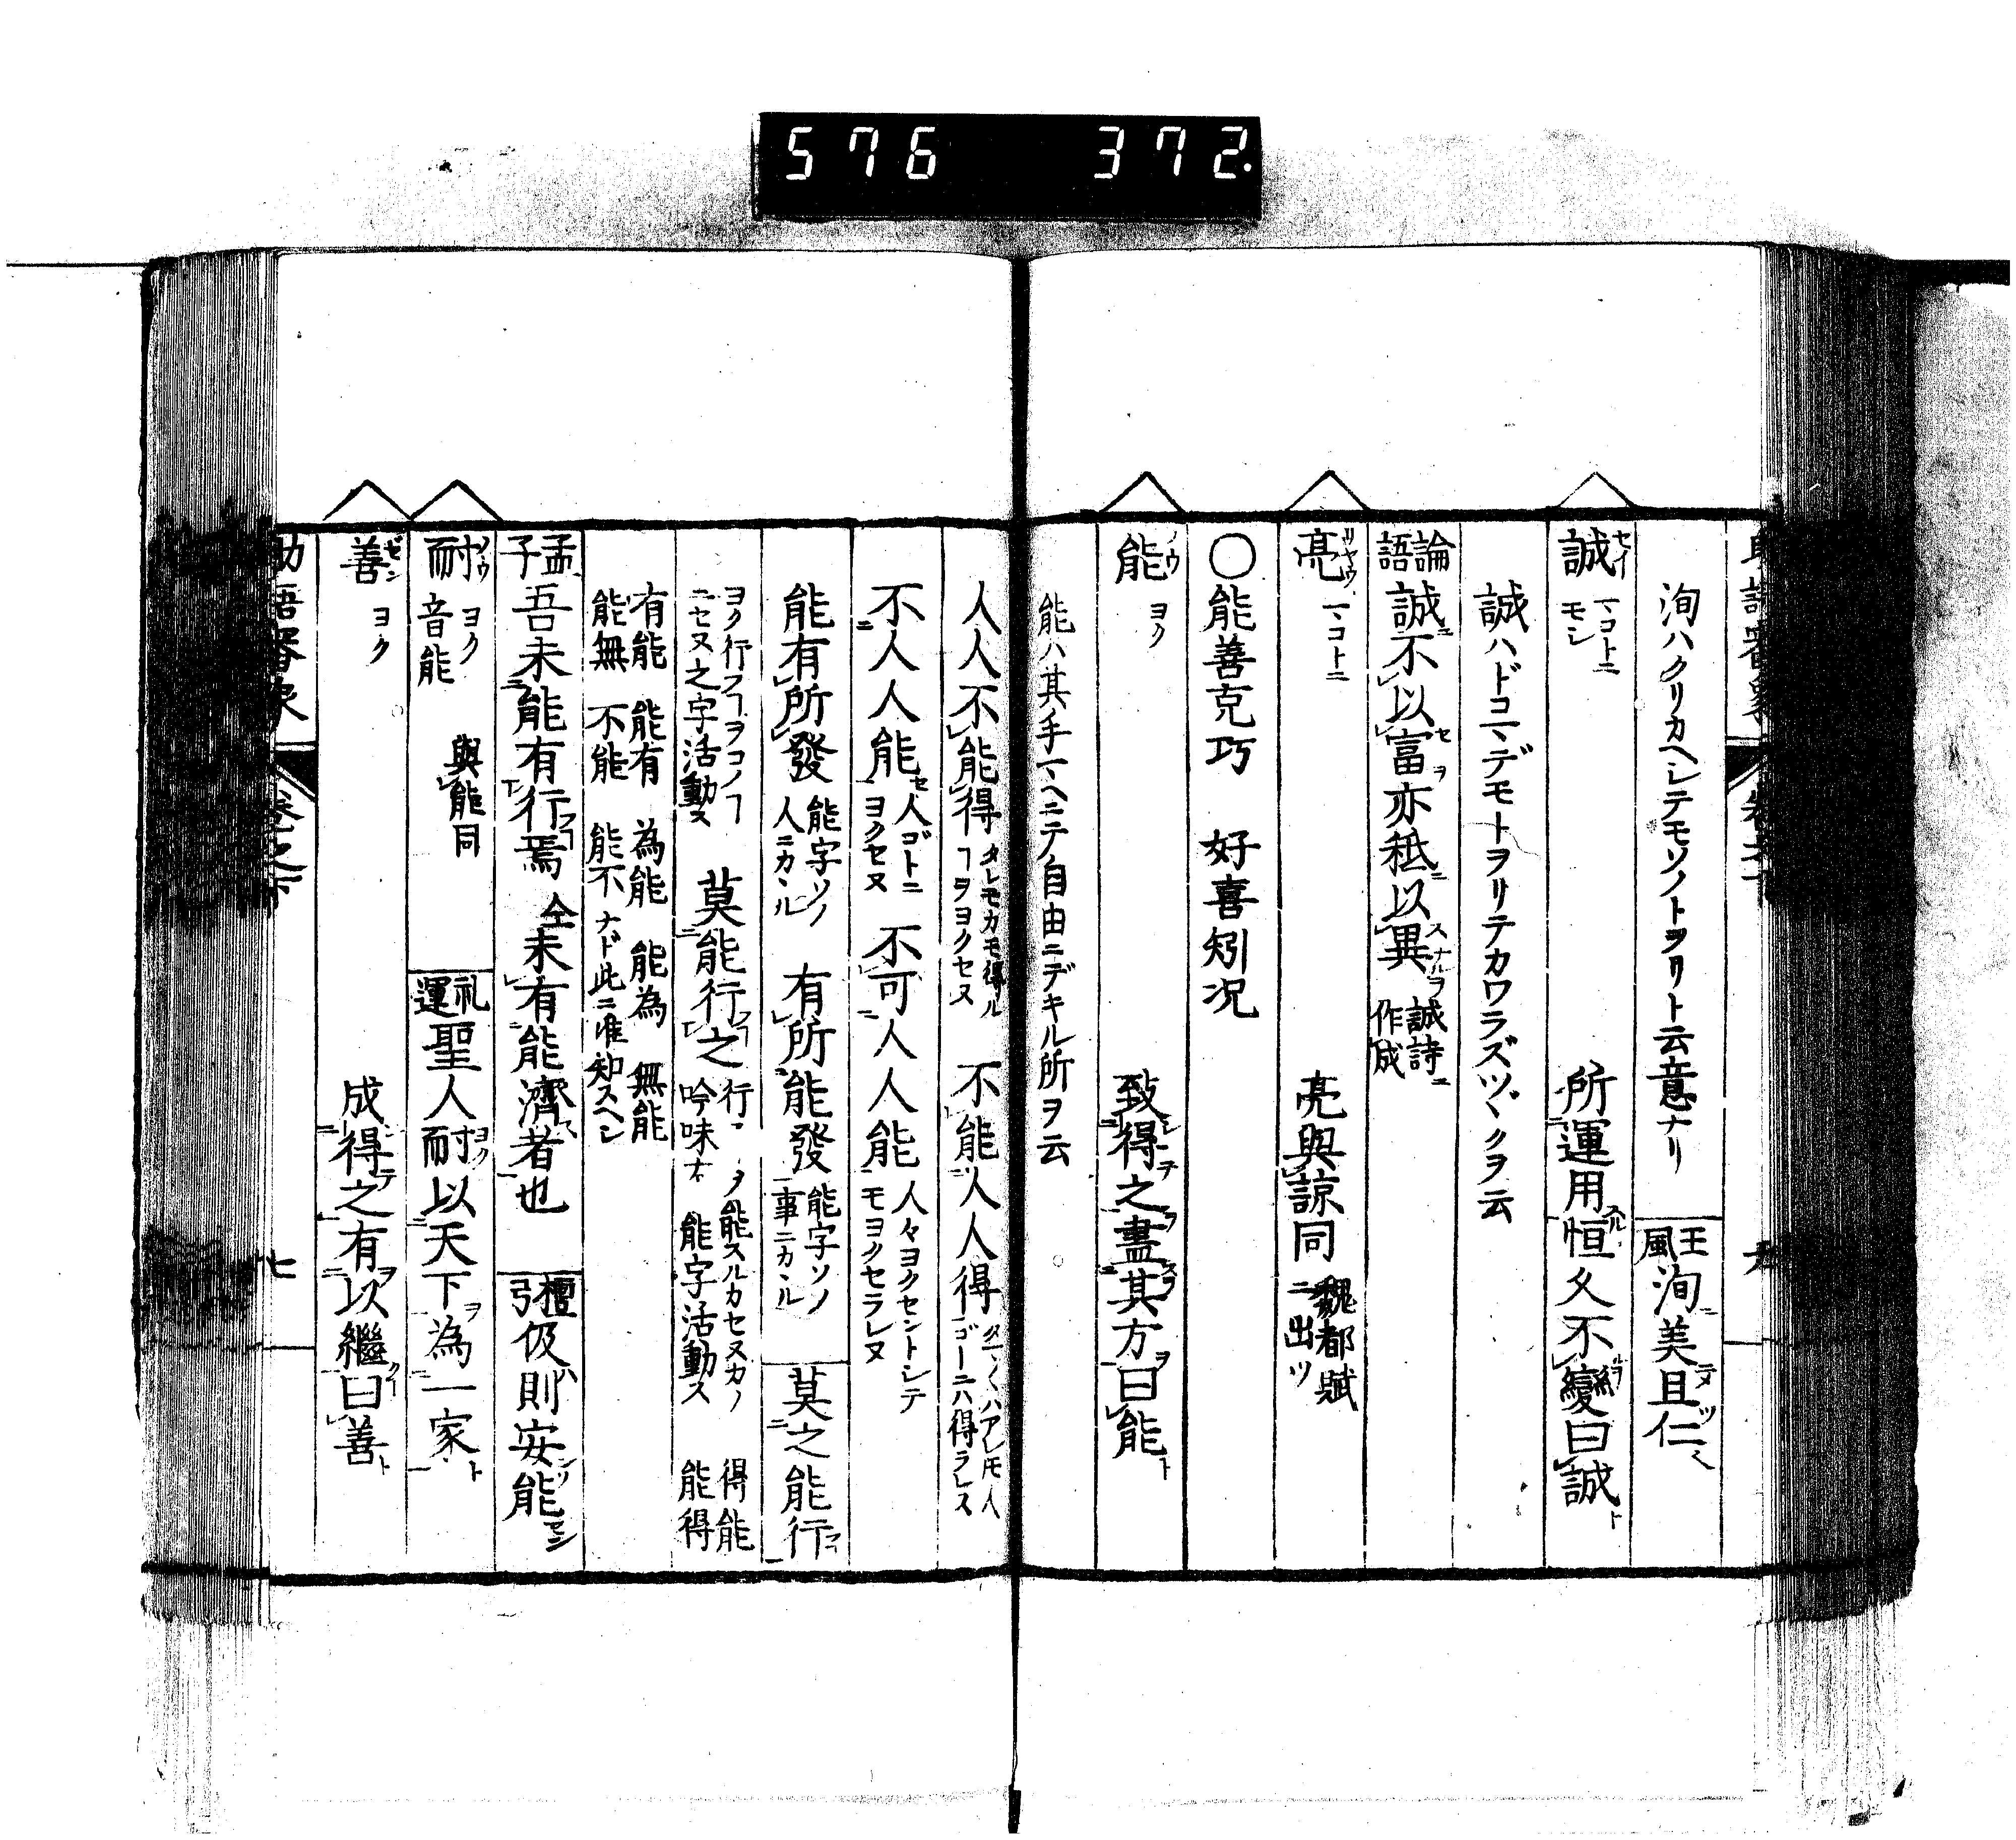 576 372.
洵ハクリカヘシテモソノトヲリト云意ナリ 王風 洵美且仁
誠 セイ マコトニ モシ 所運用恒久不變曰誠
誠ハドコマデモトヲリテカワラズツヾクヲ云
論語 誠不以富亦秖以異 誠詩ニ作成
亮 リヤウ マコトニ 亮與諒同 魏都賦ニ出ツ
○能善克巧 好喜矧況
能 ノウ ヨク 致得之盡其方曰能
能ハ其手マヘニテノ自由ニデキル所ヲ云
人人不能得 タレモカモ得ルヿヲヨクセヌ 不能人人得 タマ〳〵ハアレ𪜈人ゴトニハ得ラレス
不人人能 人ゴトニヨクセヌ 不可人人能 人々ヨクセントシテモヨクセラレヌ
能有所發 能字ソノ人ニカヽル 有所能發 能字ソノ事ニカヽル 莫之能行
ヨク行フヿヲコノヿニセヌ之字活動ス 莫能行之 行ヲ能スルカセヌカノ吟味ナ 能字活動ス 得能 能得
有能 能有 為能 能為 無能 能無 不能 能不 ナド此ニ准知スヘシ
孟子 吾未能有行焉 仝 未有能濟者也 檀弓 伋則安能
耐 ノウ ヨク 音能 與能同 礼運 聖人耐以天下為一家
善 ゼン ヨク 成得之有以繼曰善
助語審象 卷之下 七